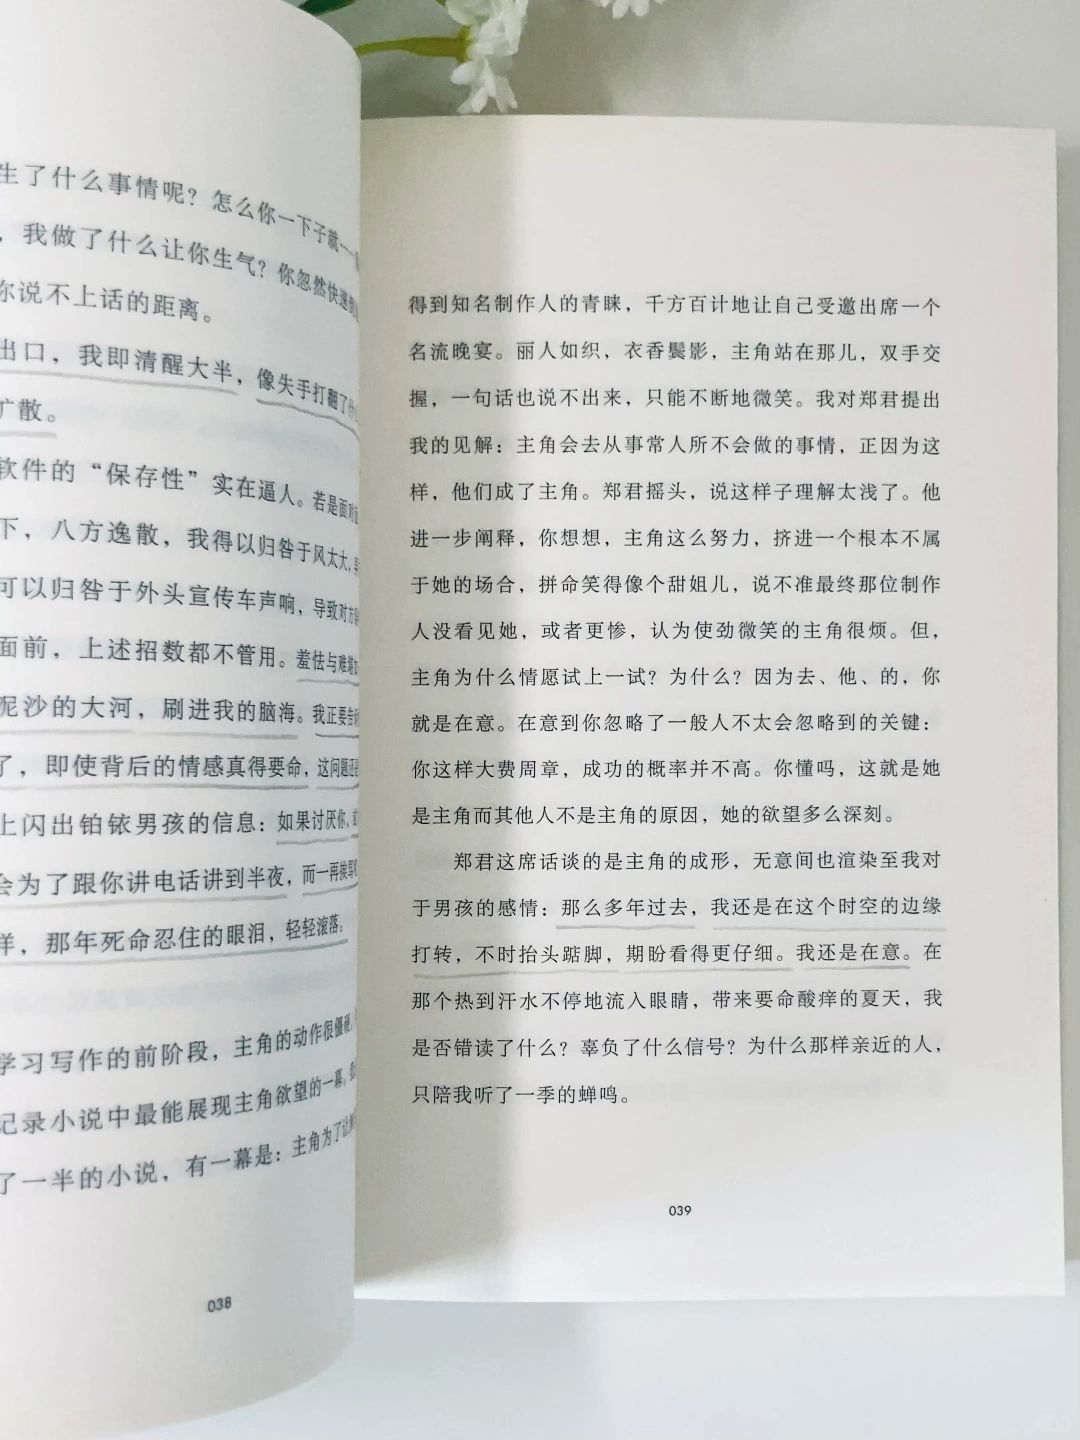 生了什么事情呢？怎么你一下子就……
，我做了什么让你生气？你忽然快速
你说不上话的距离。
出口，我即清醒大半，像失手打翻了什
扩散。
软件的“保存性”实在逼人。若是面对
下，八方逸散，我得以归咎于风太大，
可以归咎于外头宣传车声响，导致对方
面前，上述招数都不管用。羞怯与难堪
泥沙的大河，刷进我的脑海。我正要告
了，即使背后的情感真得要命，这问题还
上闪出铂铱男孩的信息：如果讨厌你，
会为了跟你讲电话讲到半夜，而一再挨骂
样，那年死命忍住的眼泪，轻轻滚落。
学习写作的前阶段，主角的动作很僵硬。
记录小说中最能展现主角欲望的一幕。
了一半的小说，有一幕是：主角为了让
038
得到知名制作人的青睐，千方百计地让自己受邀出席一个
名流晚宴。丽人如织，衣香鬓影，主角站在那儿，双手交
握，一句话也说不出来，只能不断地微笑。我对郑君提出
我的见解：主角会去从事常人所不会做的事情，正因为这
样，他们成了主角。郑君摇头，说这样子理解太浅了。他
进一步阐释，你想想，主角这么努力，挤进一个根本不属
于她的场合，拼命笑得像个甜姐儿，说不准最终那位制作
人没看见她，或者更惨，认为使劲微笑的主角很烦。但，
主角为什么情愿试上一试？为什么？因为去、他、的，你
就是在意。在意到你忽略了一般人不太会忽略到的关键：
你这样大费周章，成功的概率并不高。你懂吗，这就是她
是主角而其他人不是主角的原因，她的欲望多么深刻。
郑君这席话谈的是主角的成形，无意间也渲染至我对
于男孩的感情：那么多年过去，我还是在这个时空的边缘
打转，不时抬头踮脚，期盼看得更仔细。我还是在意。在
那个热到汗水不停地流入眼睛，带来要命酸痒的夏天，我
是否错读了什么？辜负了什么信号？为什么那样亲近的人，
只陪我听了一季的蝉鸣。
039